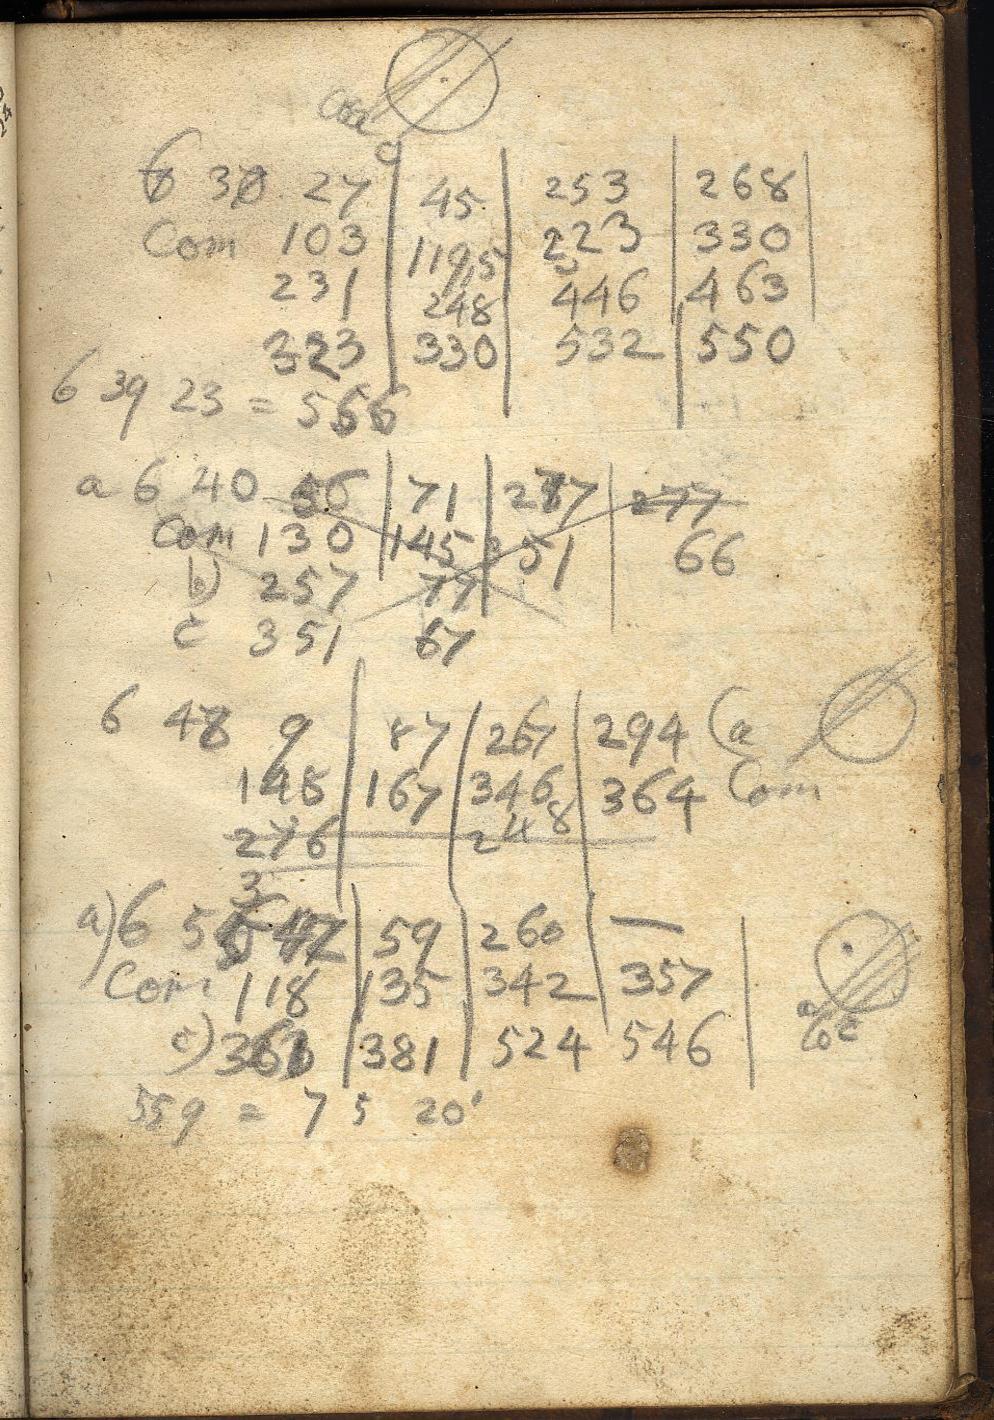 6 30 27 45 253 268
Com 103 119,5 223 330
231 248 446 463
323 330 532 550
6 39 23 = 566
a 6 40 56 71 287 277
Com 130 145 51 66
b) 257 77
c 351 67
6 48 9 87 267 294 (a
148 167 346 364 Com
276 248
3
a) 6 5 59 260 —
Com 118 135 342 357
c) 363 381 524 546
559 = 7 5 20'